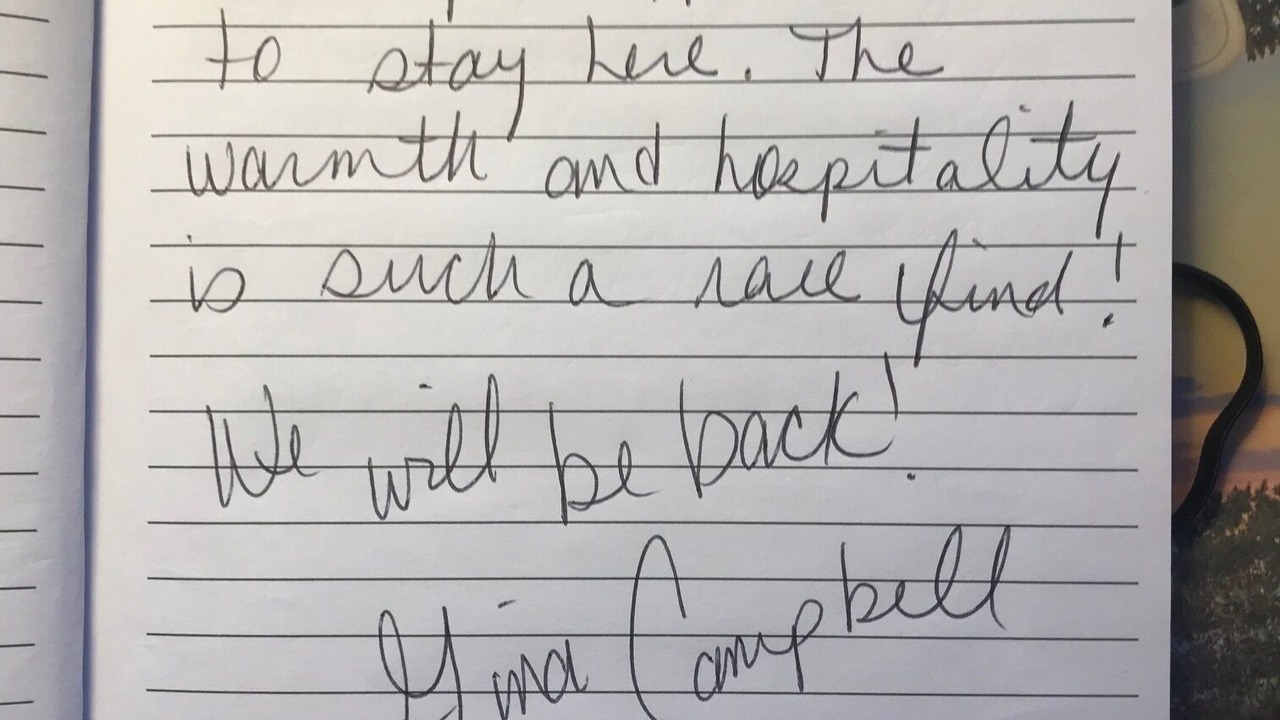 to stay here. The
warmth and hospitality
is such a rare find!
We will be back!
Gina Campbell